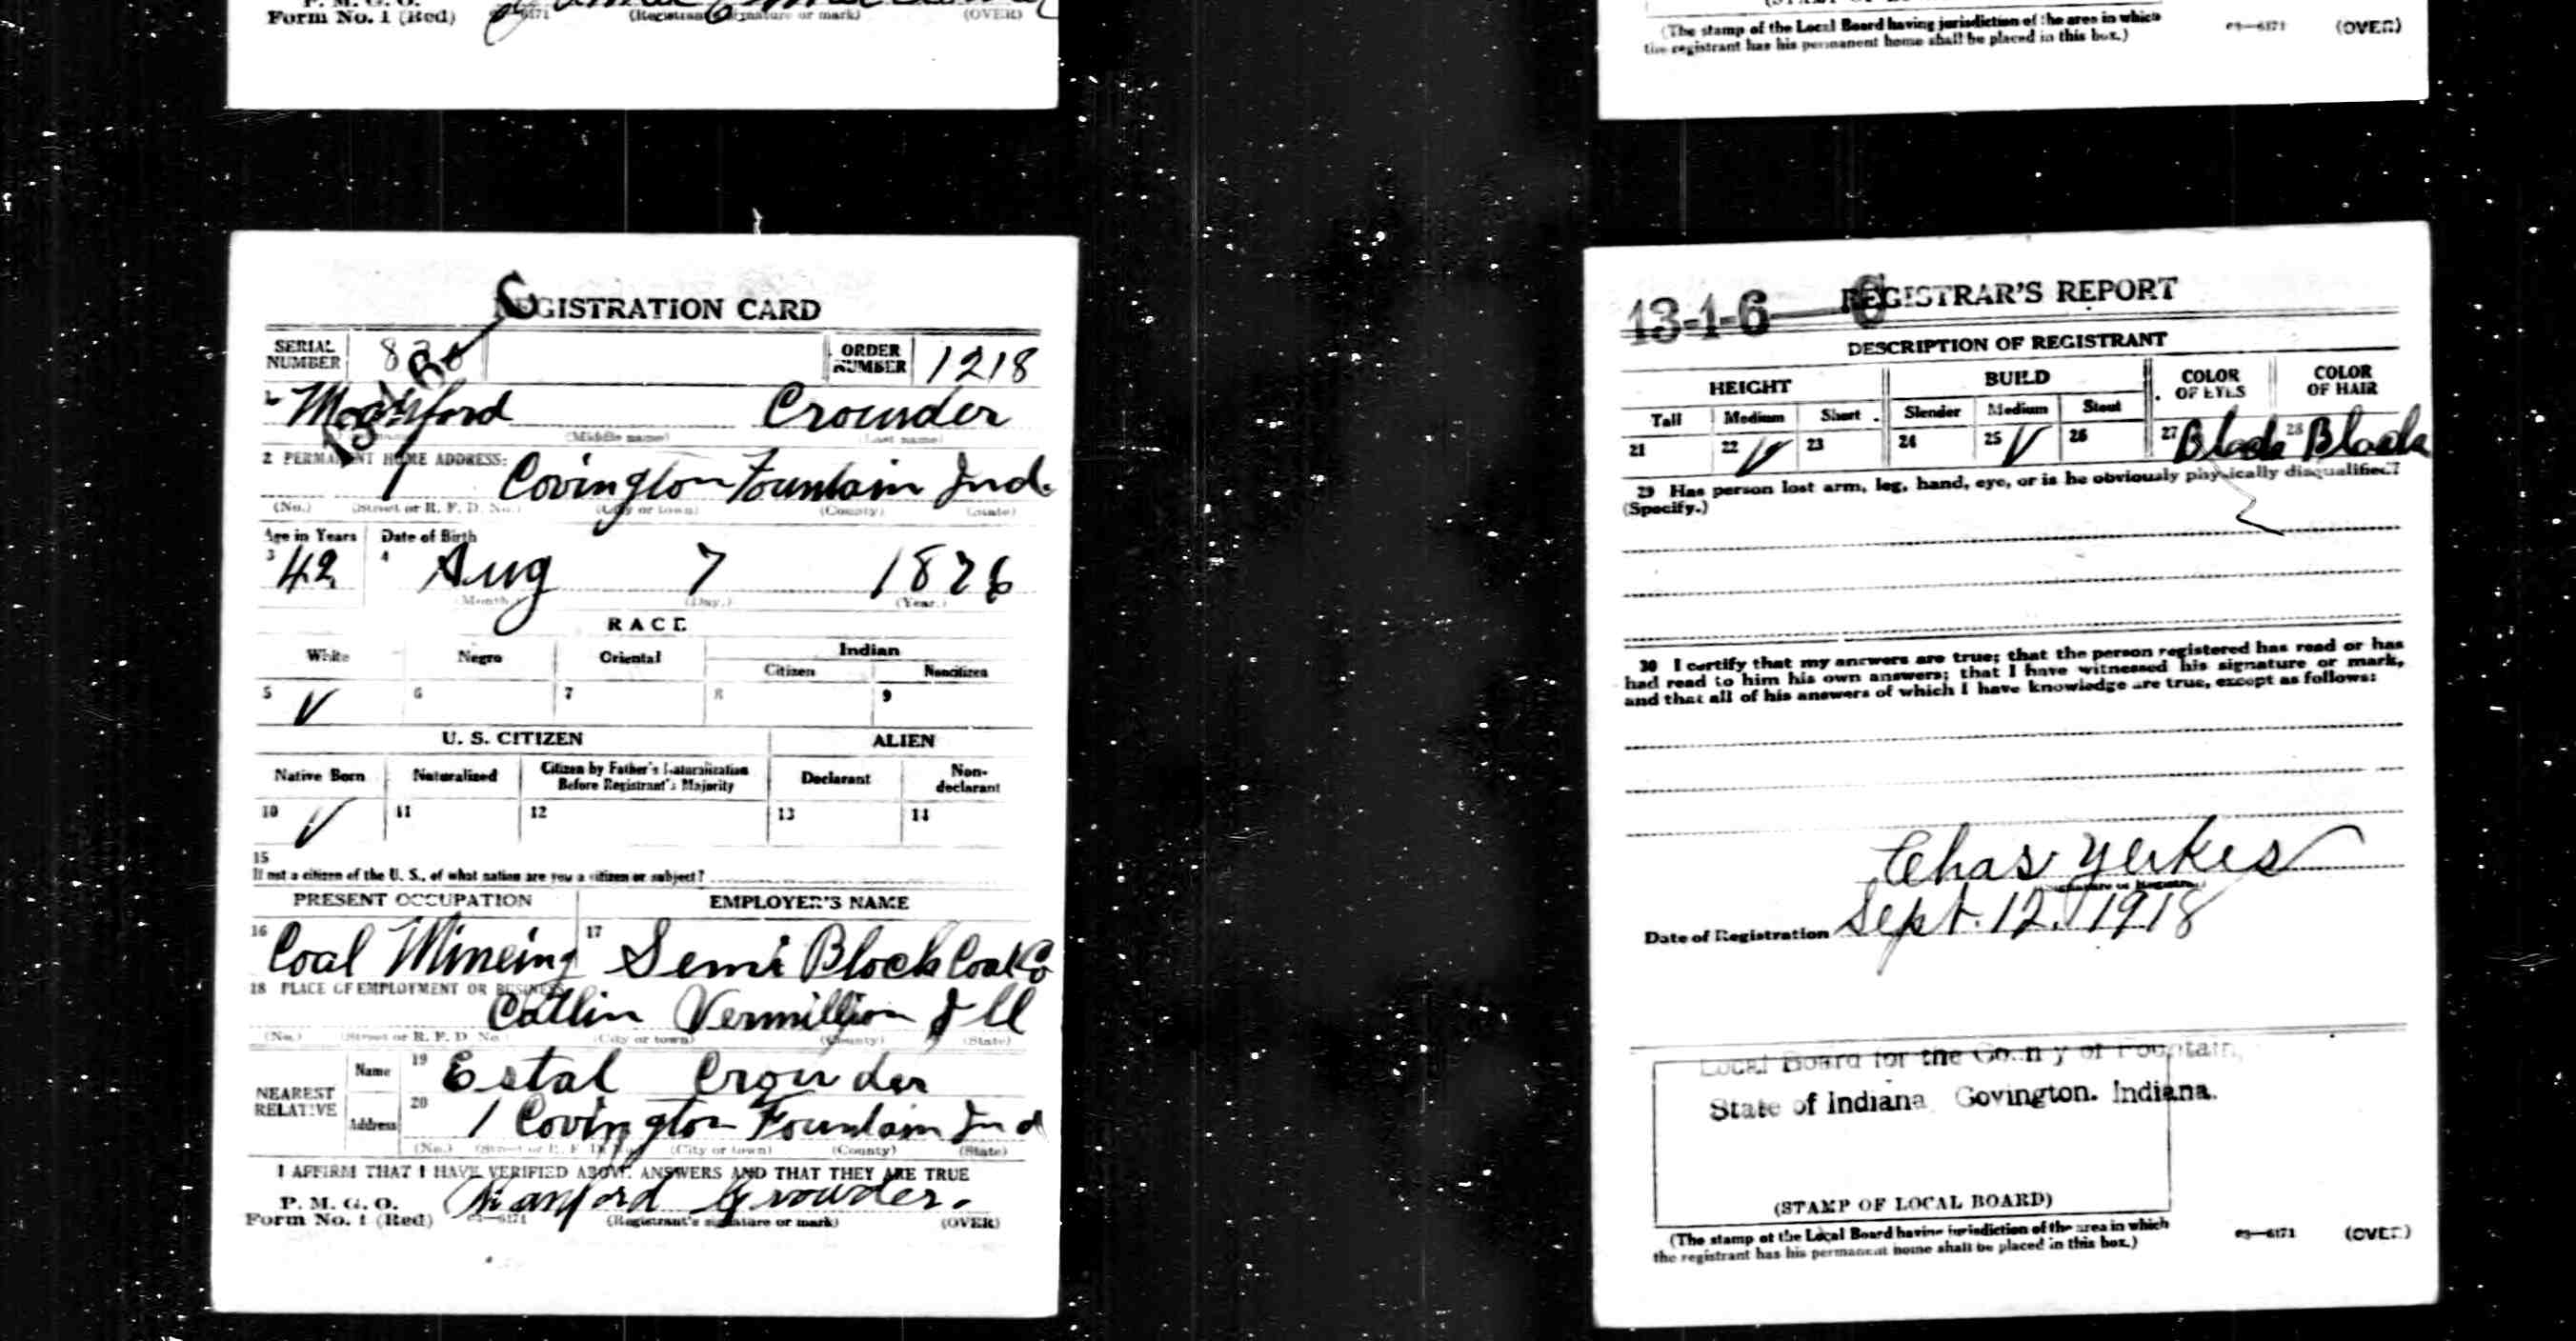 P. M. G. O.
Form No. 1 (Red)
(Registrant's signature or mark)
(OVER)
REGISTRATION CARD
SERIAL NUMBER
ORDER NUMBER 1218
1 Crowder
(Middle name) (Last name)
2 PERMANENT HOME ADDRESS:
1 Covington Fountain Ind.
(No.) (Street or R. F. D. No.) (City or town) (County) (State)
Age in Years Date of Birth
3 42 4 Aug 7 1876
(Month.) (Day.) (Year.)
RACE
White Negro Oriental Indian
Citizen Noncitizen
5 V 6 7 8 9
U. S. CITIZEN ALIEN
Native Born Naturalized Citizen by Father's Naturalization Before Registrant's Majority Declarant Non-declarant
10 V 11 12 13 14
15
If not a citizen of the U. S., of what nation are you a citizen or subject?
PRESENT OCCUPATION EMPLOYER'S NAME
16 Coal Mineing 17 Semi Block Coal Co
18 PLACE OF EMPLOYMENT OR BUSINESS:
Catlin Vermillion Ill
(No.) (Street or R. F. D. No.) (City or town) (County) (State)
NEAREST RELATIVE
Name 19 Estal Crowder
Address 20 1 Covington Fountain Ind
(No.) (Street or R. F. D. No.) (City or town) (County) (State)
I AFFIRM THAT I HAVE VERIFIED ABOVE ANSWERS AND THAT THEY ARE TRUE
P. M. G. O.
Form No. 1 (Red) 03—6171 Manford Crowder.
(Registrant's signature or mark) (OVER)
(The stamp of the Local Board having jurisdiction of the area in which
the registrant has his permanent home shall be placed in this box.)
03—6171 (OVER)
13-1-6—6 REGISTRAR'S REPORT
DESCRIPTION OF REGISTRANT
HEIGHT BUILD COLOR OF EYES COLOR OF HAIR
Tall Medium Short Slender Medium Stout
21 22 V 23 24 25 V 26 27 Black 28 Black
29 Has person lost arm, leg, hand, eye, or is he obviously physically disqualified?
(Specify.)
30 I certify that my answers are true; that the person registered has read or has
had read to him his own answers; that I have witnessed his signature or mark,
and that all of his answers of which I have knowledge are true, except as follows:
Chas Yerkes
(Signature of Registrar)
Date of Registration Sept. 12. 1918
Local Board for the County of Fountain,
State of Indiana Covington. Indiana.
(STAMP OF LOCAL BOARD)
(The stamp of the Local Board having jurisdiction of the area in which
the registrant has his permanent home shall be placed in this box.)
03—6171 (OVER)